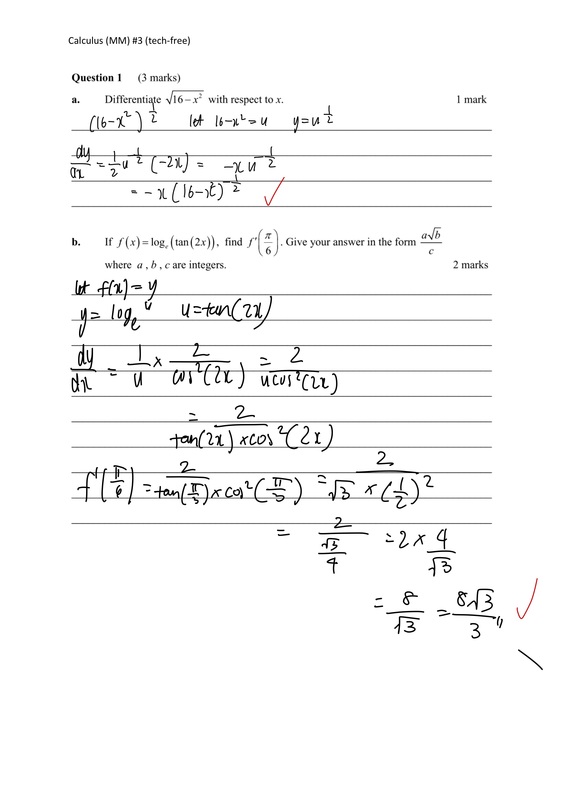 Calculus (MM) #3 (tech-free)
Question 1 (3 marks)
a. Differentiate √(16 − x²) with respect to x. 1 mark
(16-x²)^(1/2) let 16-x² = u y = u^(1/2)
dy/dx = 1/2 u^(-1/2) (-2x) = -x u^(-1/2)
= -x (16-x²)^(-1/2)
b. If f(x) = logₑ(tan(2x)), find f′(π/6). Give your answer in the form a√b/c
where a , b , c are integers. 2 marks
let f(x) = y
y = logₑ u u = tan(2x)
dy/dx = 1/u × 2/cos²(2x) = 2/(u cos²(2x))
= 2/(tan(2x) × cos²(2x))
f'(π/6) = 2/(tan(π/3) × cos²(π/3)) = 2/(√3 × (1/2)²)
= 2/(√3/4) = 2 × 4/√3
= 8/√3 = 8√3/3